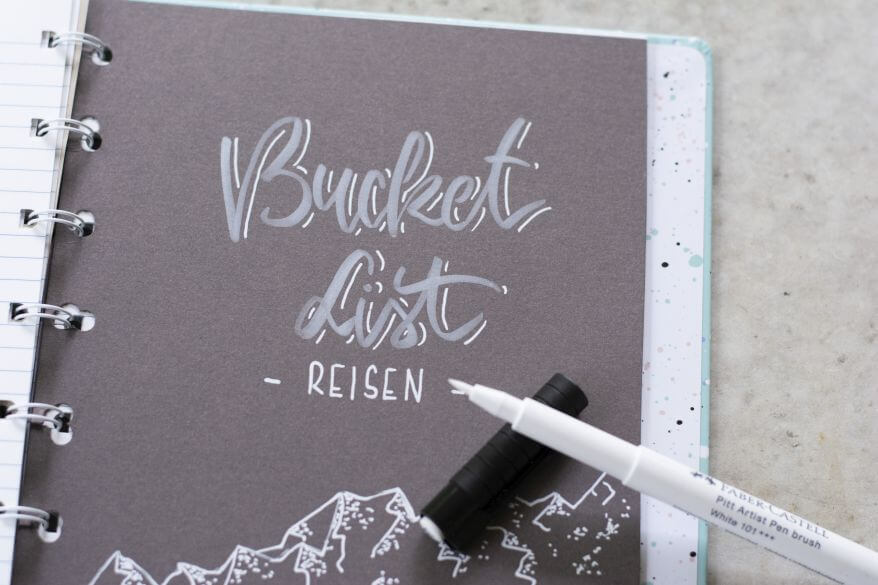 Bucket
List
- REISEN -
FABER-CASTELL
Pitt Artist Pen brush
White 101 ***